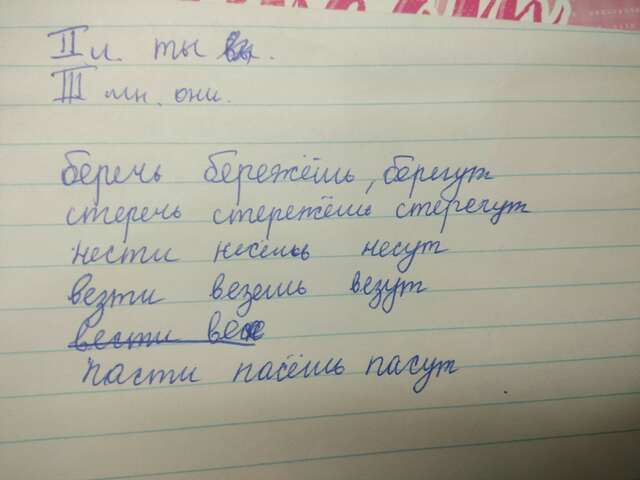 II л. ты вы.
III мн. они.
беречь бережёшь, берегут
стеречь стережёшь стерегут
нести несешь несут
везти везешь везут
вести вес
пасти пасёшь пасут